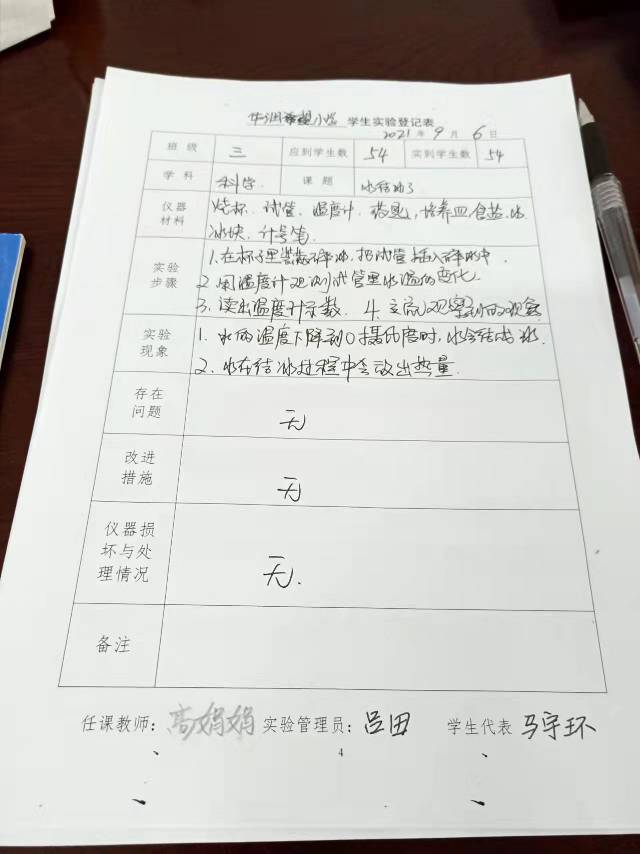 华润希望小学 学生实验登记表
2021 年 9 月 6 日
班级 三 应到学生数 54 实到学生数 54
学科 科学 课题 水结冰了
仪器材料 烧杯、试管、温度计、药匙、培养皿、食盐、水
冰块、计号笔
实验步骤 1、在杯子里装碎冰,把试管插入碎冰中.
2、用温度计观测试管里水温的变化
3、读出温度计示数 4、交流观察到的现象
实验现象 1、水的温度下降到0摄氏度时,水会结成冰.
2、水在结冰过程中会放出热量.
存在问题 无
改进措施 无
仪器损坏与处理情况 无.
备注
任课教师:高娟娟 实验管理员:吕田 学生代表 马宇环
4